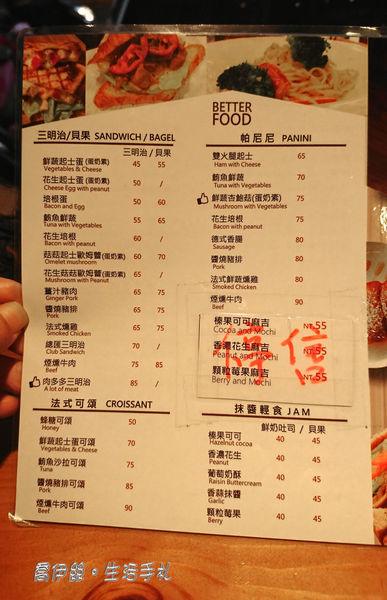 BETTER
FOOD
三明治/貝果 SANDWICH/BAGEL
三明治/貝果
鮮蔬起士蛋(蛋奶素) 45 55
Vegetables & Cheese
花生起士蛋(蛋奶素) 50 /
Cheese Egg with peanut
培根蛋 50 60
Bacon and Egg
鮪魚鮮蔬 55 65
Tuna with Vegetables
花生培根 60 /
Bacon with peanut
菇菇起士歐姆蕈(蛋奶素) 60 70
Omelet mushroom
花生菇菇歐姆蕈(蛋奶素) 65 /
Mushroom with Peanut
薑汁豬肉 65 75
Ginger Pork
醬燒豬排 65 75
Pork
法式燻雞 65 75
Smoked Chicken
總匯三明治 70 /
Club Sandwich
煙燻牛肉 75 85
Beef
肉多多三明治 85 /
A lot of meat
法式可頌 CROISSANT
蜂糖可頌 50
Honey
鮮蔬起士可頌 70
Vegetables & Cheese
鮪魚沙拉可頌 75
Tuna
醬燒豬排可頌 85
Pork
煙燻牛肉可頌 90
Beef
帕尼尼 PANINI
雙火腿起士 65
Ham with Cheese
鮪魚鮮蔬 70
Tuna with Vegetables
鮮蔬杏鮑菇(蛋奶素) 75
Mushroom with Vegetables
花生培根 75
Bacon with Peanut
德式香腸 80
Sausage
醬燒豬排 80
Pork
法式鮮蔬燻雞 80
Smoked Chicken
煙燻牛肉 90
Beef
榛果可可麻吉 NT.55
Cocoa and Mochi
香濃花生麻吉 NT.55
Peanut and Mochi
顆粒莓果麻吉 NT.55
Berry and Mochi
停信
抹醬輕食 JAM
鮮奶吐司/貝果
榛果可可 40 45
Hazelnut cocoa
香濃花生 40 45
Peanut
葡萄奶酥 40 45
Raisin Buttercream
香蒜抹醬 40 45
Garlic
顆粒莓果 40 45
Berry
喬伊絲。生活手札